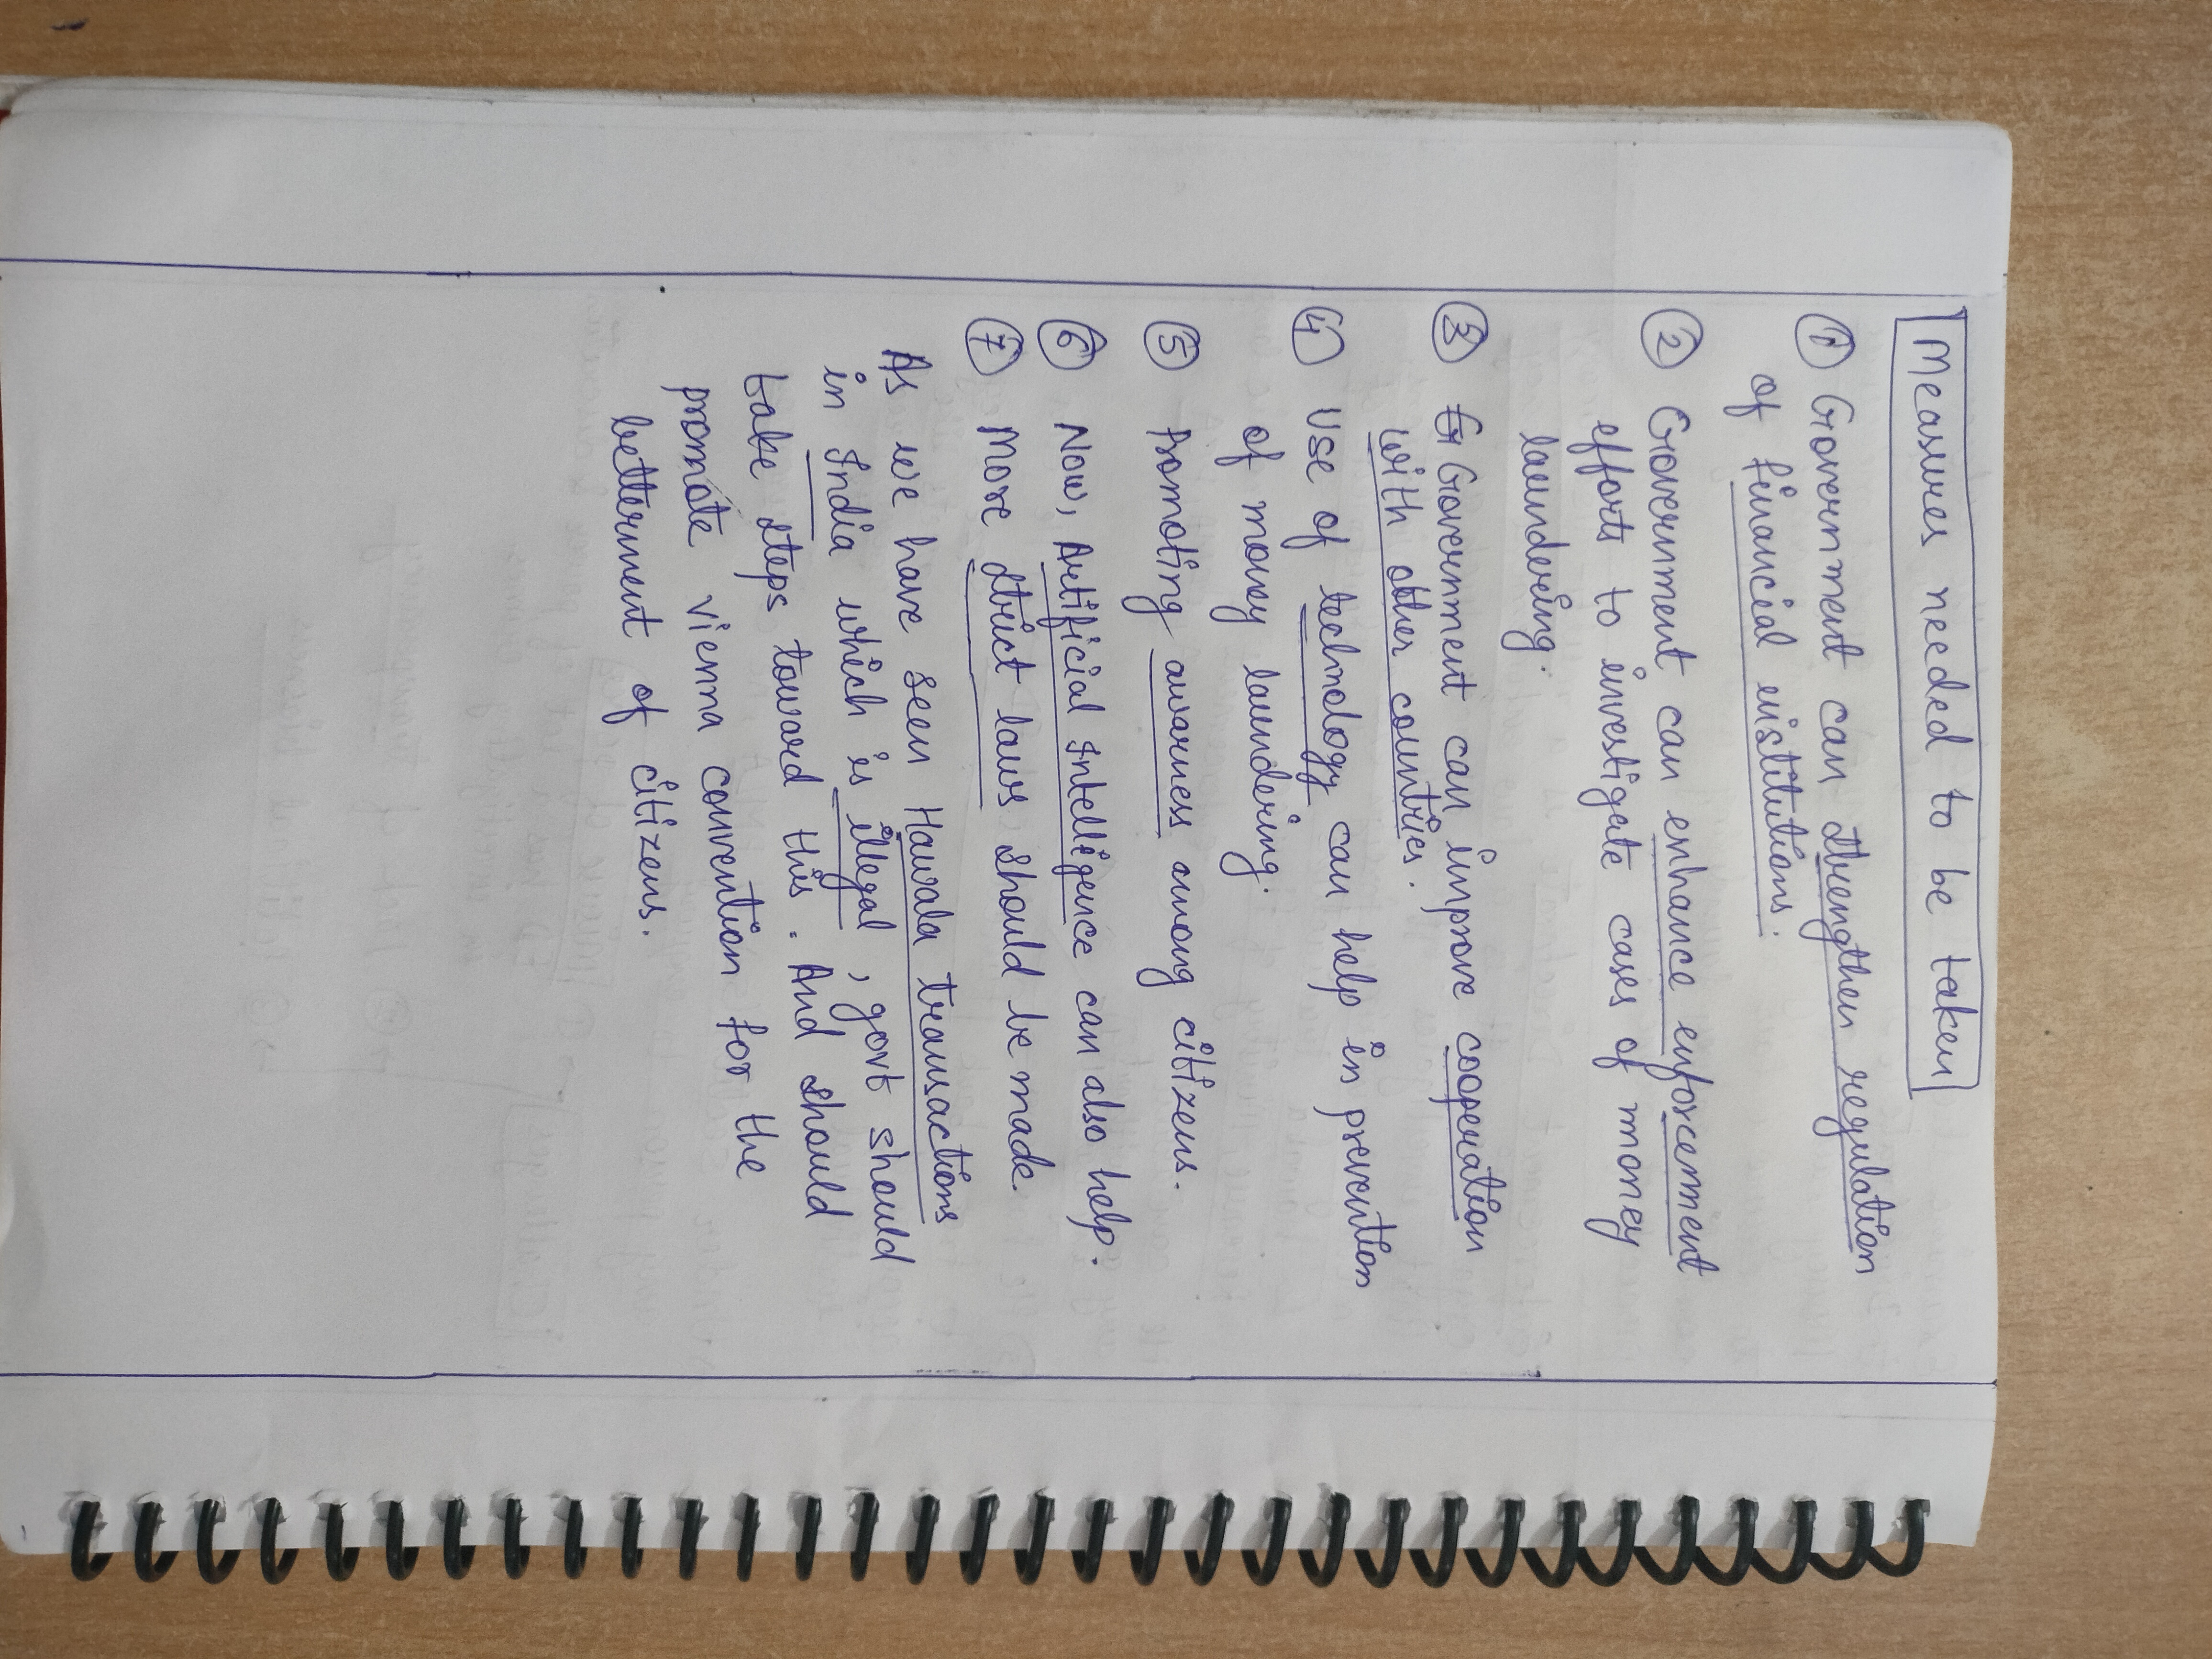 Measures needed to be taken
① Government can strengthen regulation
of financial institutions.
② Government can enhance enforcement
efforts to investigate cases of money
laundering.
③ Government can improve cooperation
with other countries.
④ Use of technology can help in prevention
of money laundering.
⑤ Promoting awarness among citizens.
⑥ Now, Artificial Intelligence can also help.
⑦ More strict laws should be made.
As we have seen Hawala transactions
in India which is illegal, govt should
take steps toward this. And should
promote vienna convention for the
betterment of citizens.